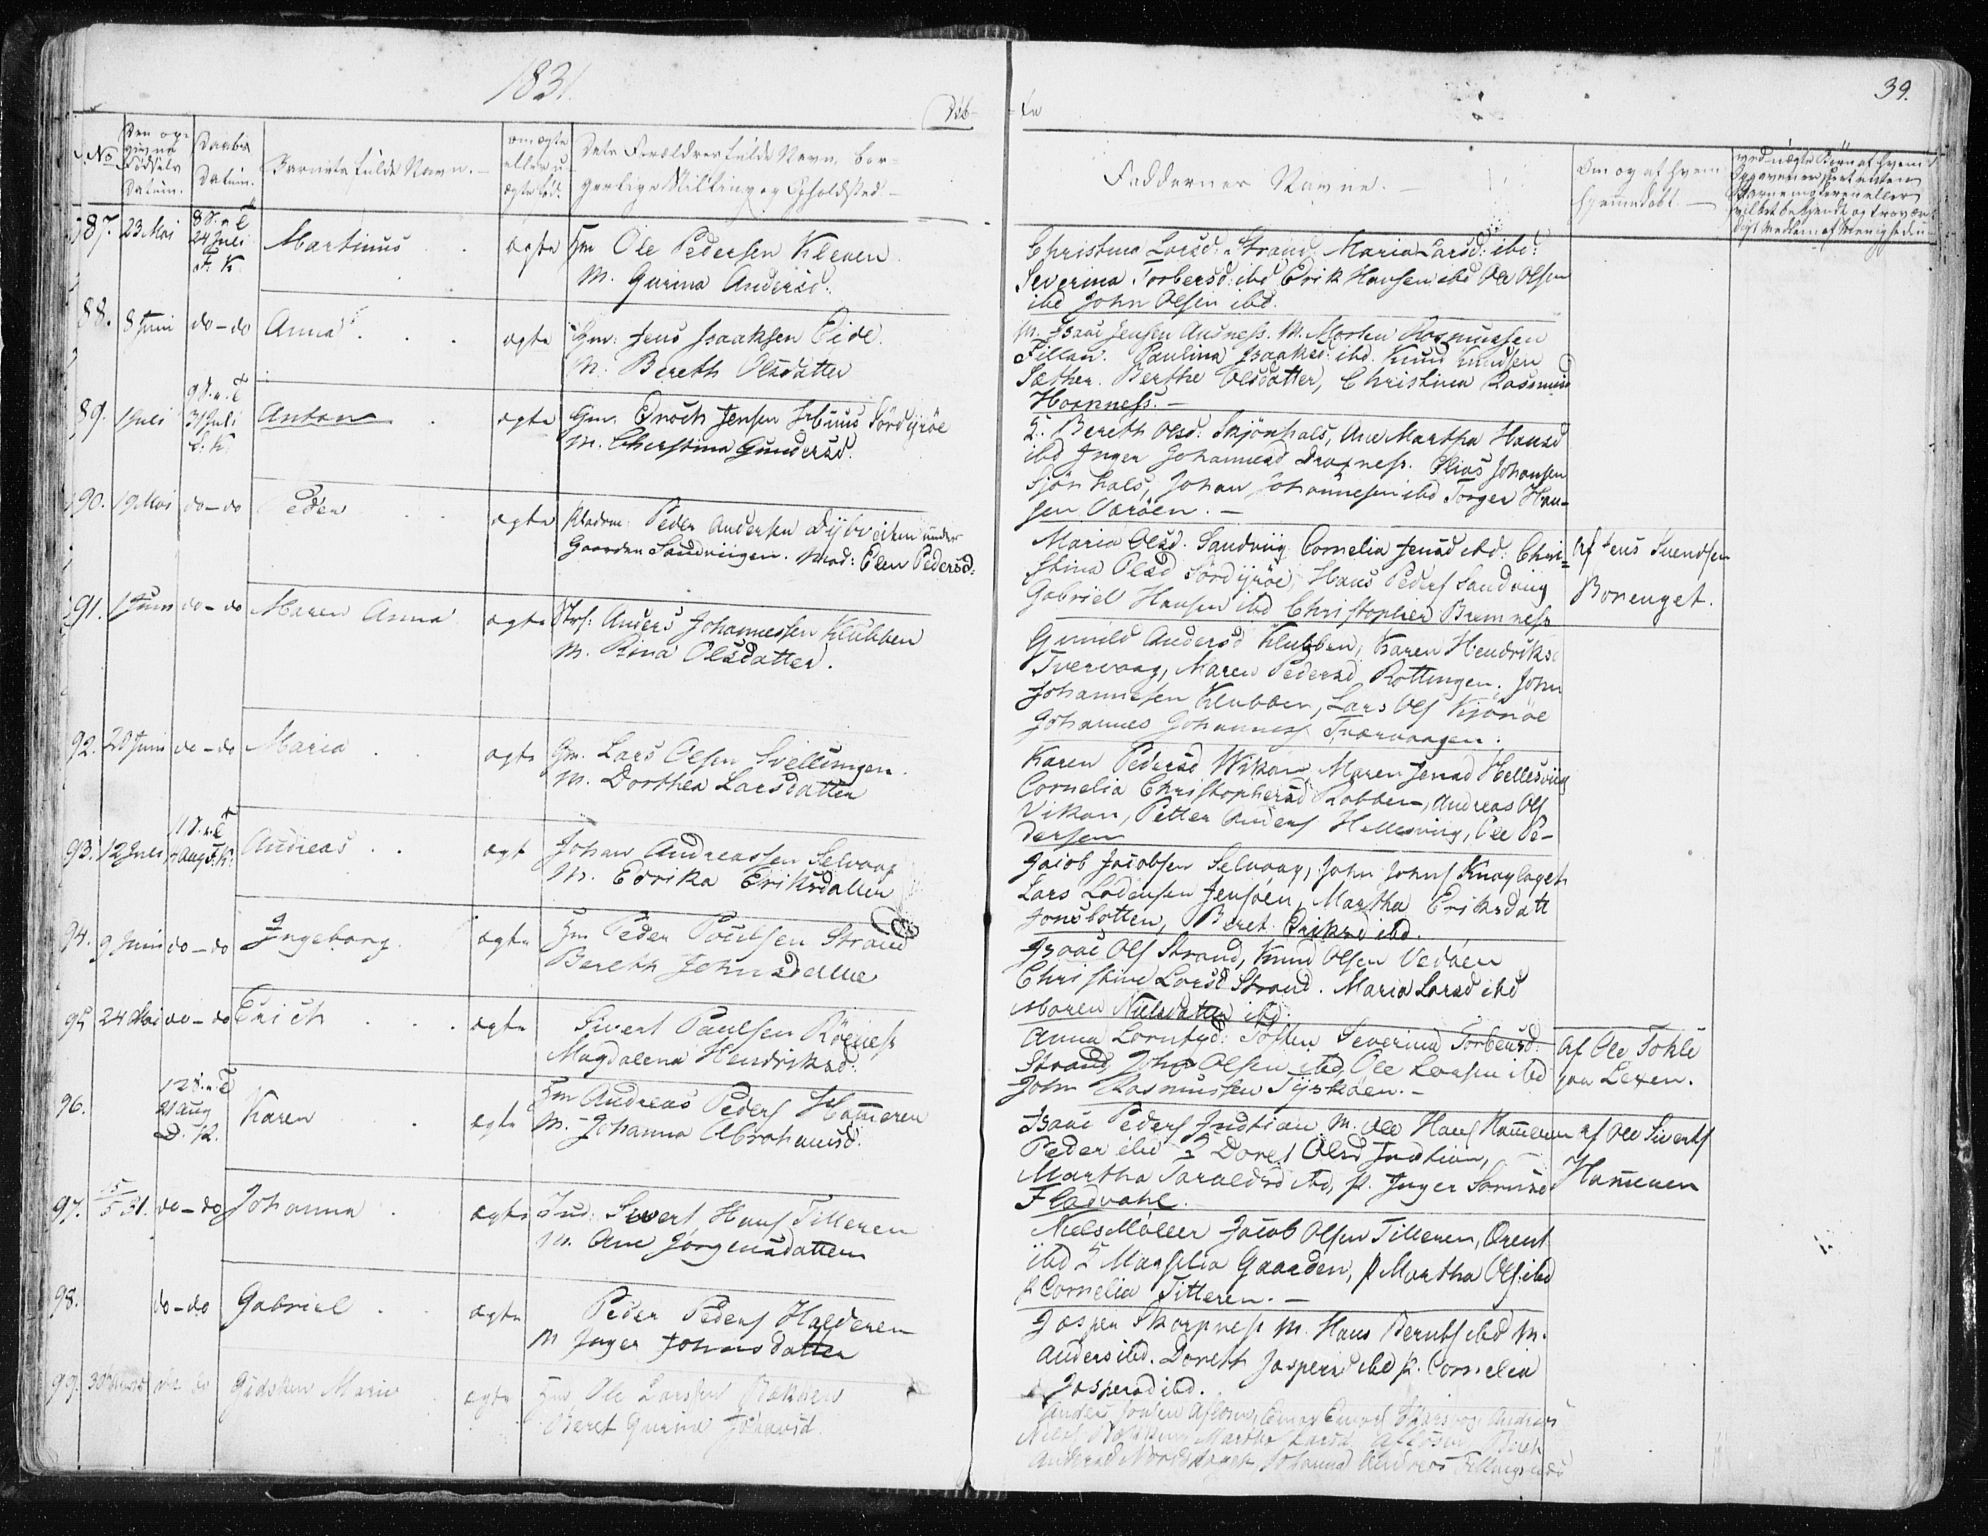 1831.
Døb-
te
39.
No
Den op-
givne
Fødsels
Datum.
Daabs
Datum.
Barnets fulde Navn. -
om ægte
eller u-
ægte fød.
Dets Forældres fulde Navn, bor-
gerlige Stilling og Opholdsted -
Faddernes Navne. -
Om og af hvem
hjemmedøbt. -
87. 23 Mai 24 Juli F. K. Martinus ægte Ole Pedersen Kleven
M. Gurina Andersd:
Christina Larsd: Strand. Maria Larsd: ibd:
Severina Torbersd: ibd Erik Hansen ibd Ole Olsen
ibd John Olsen ibd.
88. 8 Juni do-do Anna ægte Gm: Jens Isaaksen Eide.
M. Bereth Olsdatter
M. Isaac Jensen Audness. M. Morten Rasmussen
Fillan. Paulina Isaaksd: ibd. Knud Knudsen
Sæther. Berthe Olsdatter, Christina Rasmusd
Hopness. -
89. 1 Juli 31 Juli Anton ægte Gm. Enoch Jensen Sørdyrøe
M. Christina Gundersd.
Bereth Olsd: Skjønhals, Ane Martha Hansd
ibd Inger Johannesd Draxness. Elias Johansen
Sjønhals, Johan Johannesen ibd Torger Han-
sen Varøen. -
90. 19 Mai do-do Peder ægte Peder Andersen Dybvigen under
Gaarden Sandviigen. Mod: Elen Pedersd:
Maria Olsd. Sandviig Cornelia Jensd ibd: Chri-
stina Olsd Sørdyrøe, Hans Peders Sandvig
Gabriel Hansen ibd Christopher Bremness
af Jens Svendsen
Borenget.
91. 1 Juni do-do Maren Anna ægte Anders Johannessen Klubben
M. Rina Olsdatter.
Gunild Andersd Klubben, Karen Hendriksd
Tvervaag, Maren Pedersd Rottingen, John
Johannesen Klubben, Lars Ols Kjønøe
Johannes Johanness Tværvaagen.
92. 20 Juni do-do Maria ægte Gm. Lars Olsen Svellingen.
M. Dorthea Larsdatter
Karen Pedersd Wikan, Maren Jensd Hellesviig
Cornelia Christophersd Robben, Andreas Ols
Vikan, Petter Anders Hellesviig, Ole Pe-
dersen
93. 12 Juli Andreas ægt Johan Andreassen Selvaag
M. Edrika Eriksdatter
Jacob Jacobsen Selvaag, John Johns Knaglaget
Lars Lodensen Jensøen, Martha Eriksdatt
Jonsbotten, Beret Eriksd ibd.
94. 9 Juni do-do Ingeborg. ægte Peder Poulsen Strand
Bereth Johnsdatter
Isaac Ols Strand, Knud Olsen Vedøen
Christine Larsd Strand. Maria Larsd ibd
Maren Nielsdatter ibd.
95 24 Mai do-do Erich ægte Sivert Paulsen Røeness
Magdalena Hendriksd:
Anna Lorntsd: Toften Severina Torbersd:
Strand, John Olsen ibd, Ole Larsen ibd
John Rasmussen Tyskøen. -
af Ole Tokle
paa Lexen.
96. 21 Aug D. K. Karen ægte Andreas Peders Hameren
M. Johanna Abrahamsd:
Isaac Peders Indtian M. Ole Hans Hameren
Peder ibd Doret Olsd Indtian,
Martha Taraldsd ibd, p. Inger
Fladvahl.
af Ole Siverts
Hameren
97. 15/5 31. do-do Johanna ægte Ind: Sivert Hans Titteren
M. Ane Jørgensdatter
Niels Møller Jacob Olsen Titteren, Orent
ibd Margelia Gaarden, p Martha Ols: ibd
p Cornelia Titteren. -
98. do-do Gabriel ægte Peder Peders Halderen
M Inger Johnsdatter
Jasper Skarpness M. Hans Bernts ibd M.
Anders ibd. Doreth Jaspersd ibd p. Cornelia
Jaspersd ibd.
99. do do Gidsken Marie ægte Ole Larssen
Beret Gurina Johansd.